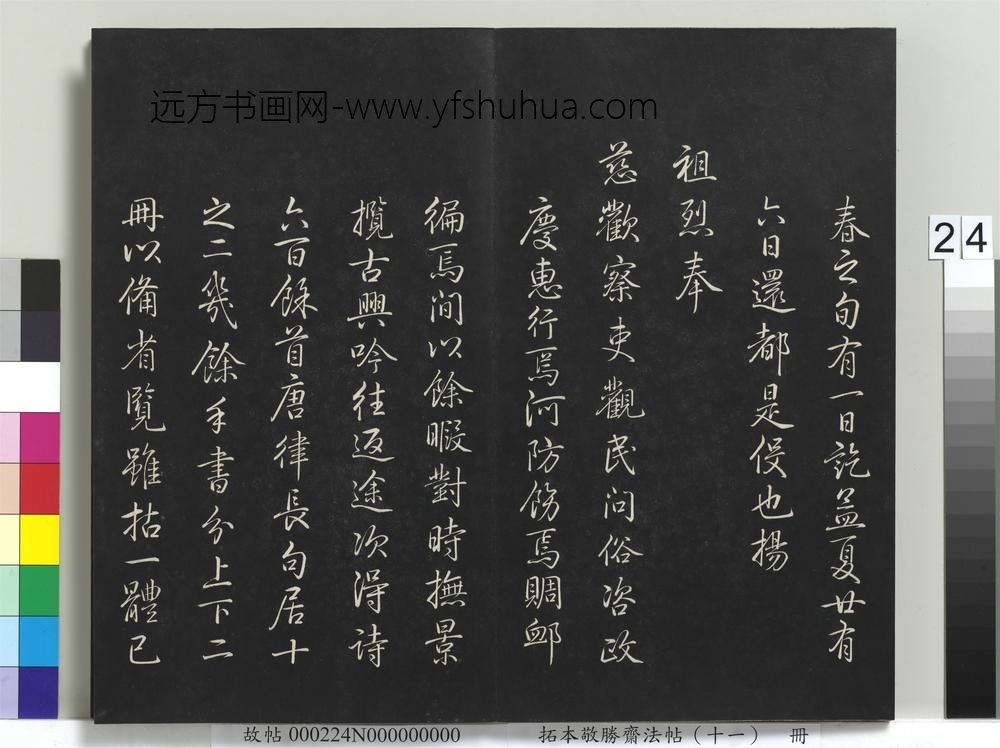 远方书画网-www.yfshuhua.com
春之旬有一日訖孟夏廿有
六日還都是役也揚
祖烈奉
慈歡察吏觀民问俗咨政
慶惠行焉河防飭焉賙䘏
徧焉间以餘暇對時撫景
攬古興吟往返途次得詩
六百餘首唐律長句居十
之二幾餘手書分上下二
冊以備省覧雖拈一體已
24
故帖 000224N000000000 拓本敬勝齋法帖（十一） 冊